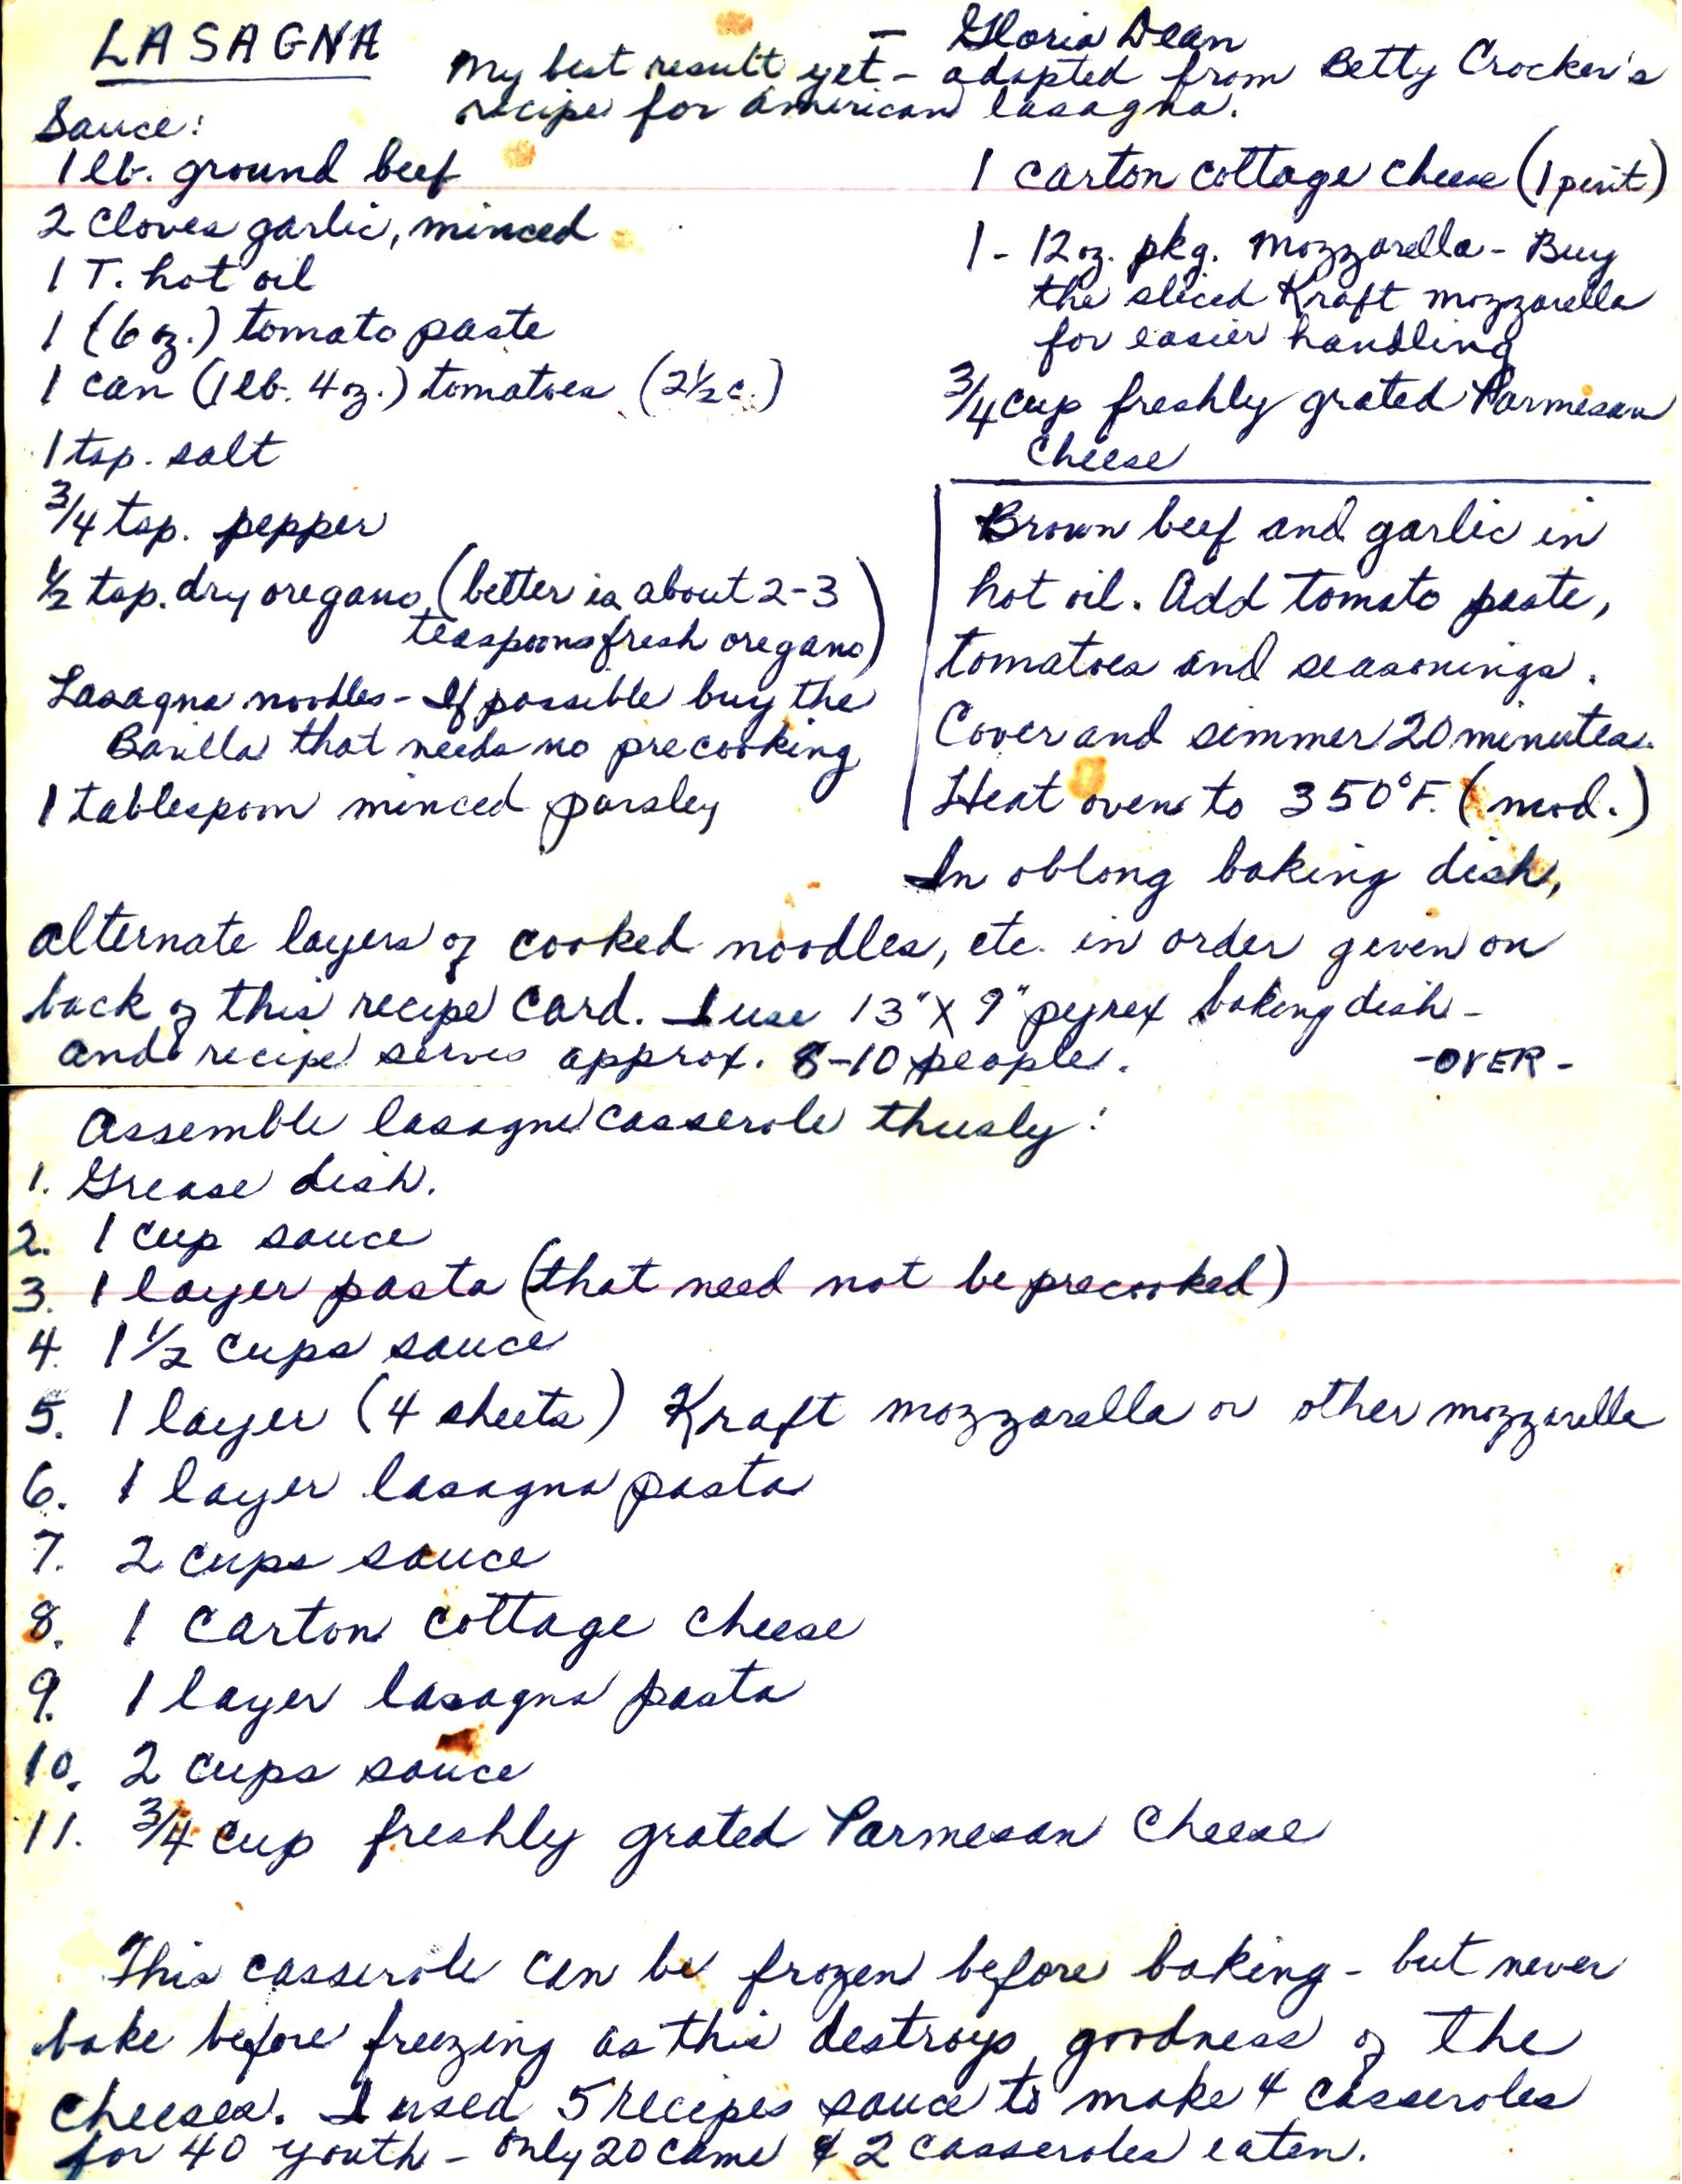 LASAGNA
- Gloria Dean
My best result yet - adapted from Betty Crocker's
recipe for american lasagna.
Sauce:
1 lb. ground beef
2 cloves garlic, minced
1 T. hot oil
1 (6 oz.) tomato paste
1 can (1 lb. 4 oz.) tomatoes (2 1/2 c.)
1 tsp. salt
3/4 tsp. pepper
1/2 tsp. dry oregano (better is about 2-3
teaspoons fresh oregano)
Lasagna noodles - If possible buy the
Barilla that needs no precooking
1 tablespoon minced parsley
1 carton cottage cheese (1 pint)
1 - 12 oz. pkg. mozzarella - Buy
the sliced Kraft mozzarella
for easier handling
3/4 cup freshly grated Parmesan
cheese
Brown beef and garlic in
hot oil. Add tomato paste,
tomatoes and seasonings.
Cover and simmer 20 minutes.
Heat oven to 350°F. (mod.)
In oblong baking dish,
alternate layers of cooked noodles, etc. in order given on
back of this recipe card. I use 13" X 9" pyrex baking dish -
and recipe serves approx. 8-10 people.
-OVER-
Assemble lasagne casserole thusly:
1. Grease dish.
2. 1 cup sauce
3. 1 layer pasta (that need not be precooked)
4. 1 1/2 cups sauce
5. 1 layer (4 sheets) Kraft mozzarella or other mozzarella
6. 1 layer lasagna pasta
7. 2 cups sauce
8. 1 carton cottage cheese
9. 1 layer lasagna pasta
10. 2 cups sauce
11. 3/4 cup freshly grated Parmesan cheese
This casserole can be frozen before baking - but never
bake before freezing as this destroys goodness of the
cheeses. I used 5 recipes sauce to make 4 casseroles
for 40 youth - only 20 came & 2 casseroles eaten.